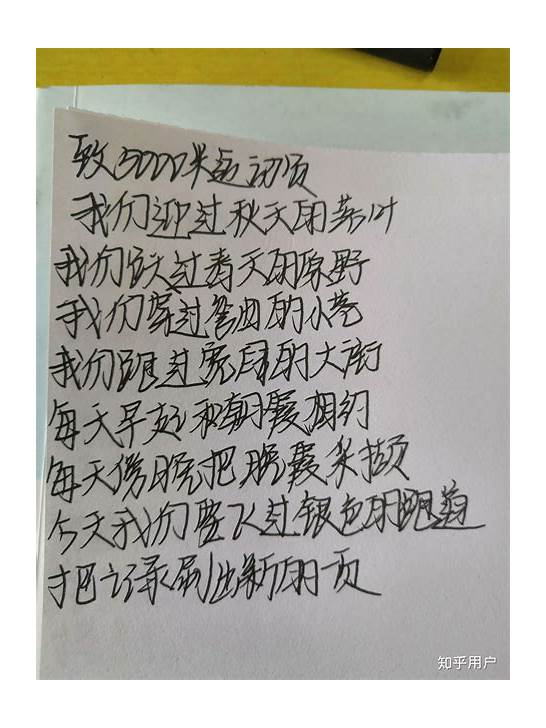 致5000米运动员
我们迎过秋天的落叶
我们跃过春天的原野
我们穿过弯曲的小巷
我们跑过宽阔的大街
每天早起和朝霞相约
每天傍晚把晚霞采撷
今天我们要飞过银色的跑道
把记录刷出新的一页
知乎用户